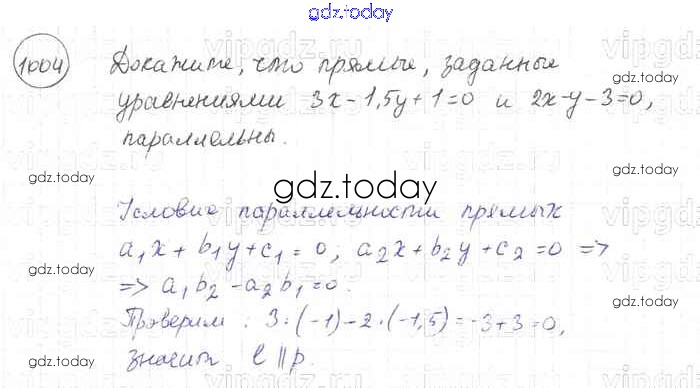 gdz.today
1004
Докажите, что прямые, заданные
уравнениями 3x-1,5y+1=0 и 2x-y-3=0,
параллельны.
gdz.today
gdz.today
gdz.today
gdz.today
Условие параллельности прямых
a₁x+b₁y+c₁=0; a₂x+b₂y+c₂=0 =>
=> a₁b₂-a₂b₁=0.
Проверим: 3·(-1)-2·(-1,5)=-3+3=0,
значит l || p.
gdz.today
gdz.today
gdz.today